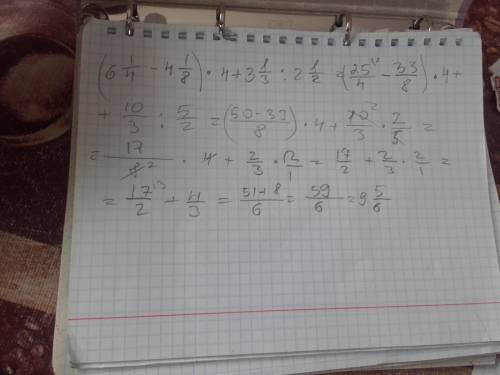 (6 1/4 - 4 1/8) · 4 + 3 1/3 : 2 1/2 = (25/4 - 33/8) · 4 +
+ 10/3 : 5/2 = (50-33/8) · 4 + 10/3 · 2/5 =
= 17/8 · 4 + 2/3 · 2/1 = 17/2 + 2/3 · 2/1 =
= 17/2 + 4/3 = 51+8/6 = 59/6 = 9 5/6